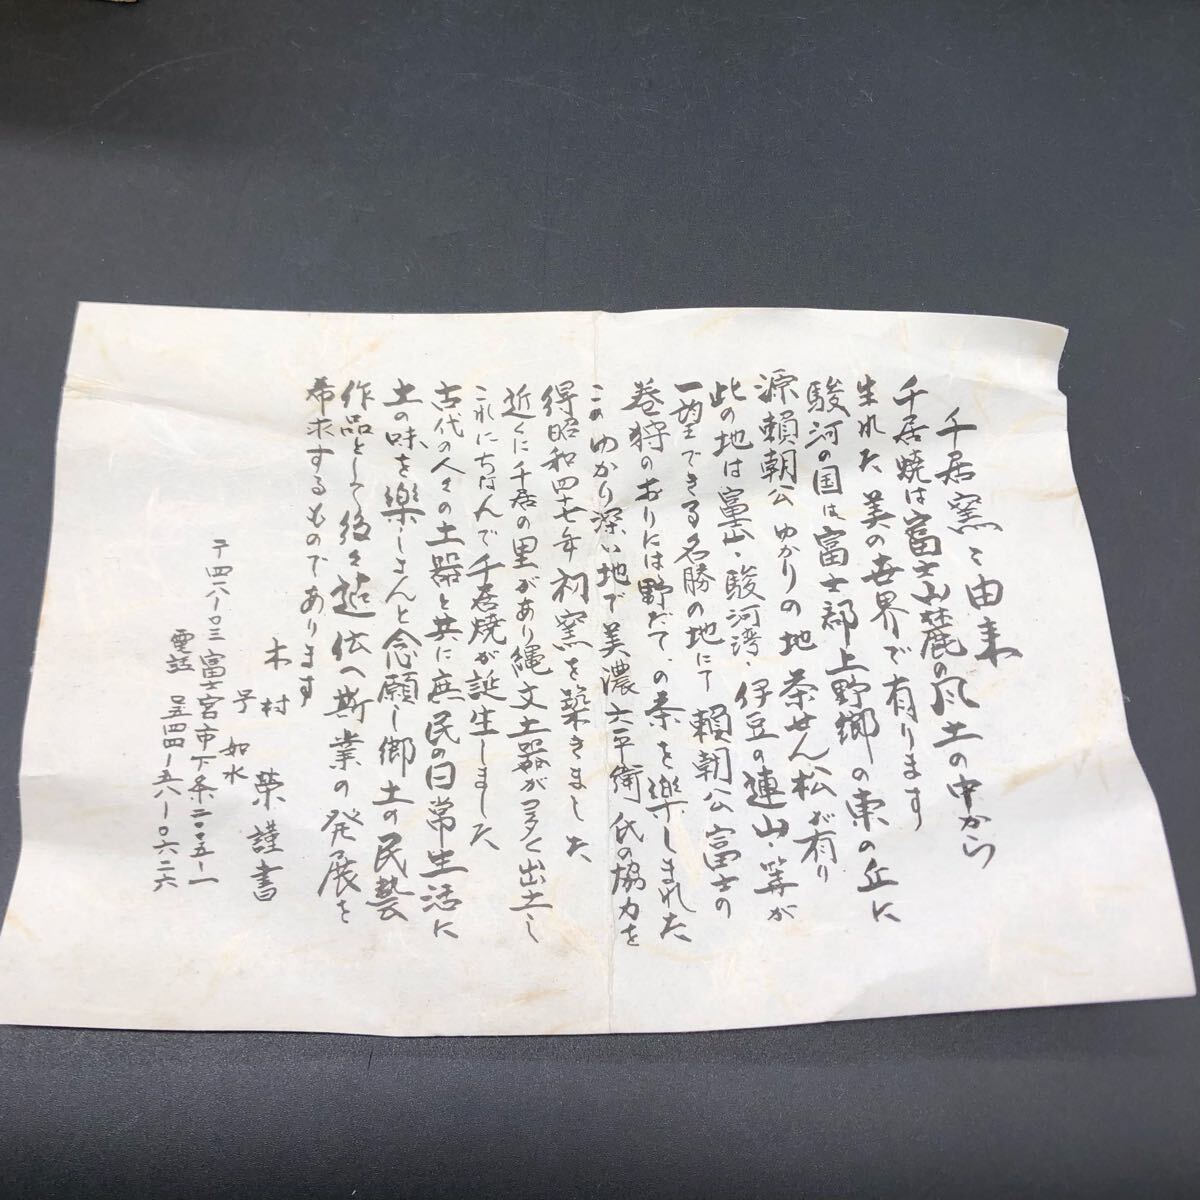 千居窯ミ由来
千居焼は富士山麓の風土の中から
生れた美の世界で有ります
駿河の国は富士郡上野郷の東の丘に
源賴朝公ゆかりの地茶せん松が有り
此の地は富士山・駿河湾・伊豆の連山・等が
一望できる名勝の地にて賴朝公富士の
巻狩のおりには野だて、の茶を樂しまれた
このゆかり深い地で美濃六平衛氏の協力を
得昭和四七年初窯を築きました
近くに千居の里があり縄文土器が多く出土し
これにちなんで千居焼が誕生しました
古代の人々の土器と共に庶民の日常生活に
土の味を樂しさんと念願し郷土の民藝
作品として後々迠伝へ斯業の発展を
希求するものであります
木村栄謹書
号如水
〒四一八ー〇三富士宮市下条二〇五ー一
電話呈四四ー五八ー〇六二六